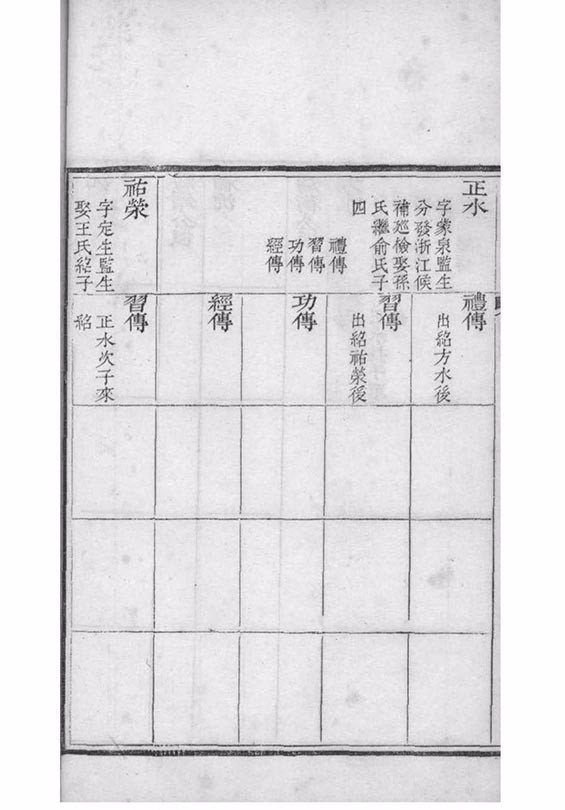 正水
字蒙泉監生
分發浙江候
補廵檢娶孫
氏繼俞氏子
四
禮傳
習傳
功傳
經傳
祐榮
字定生監生
娶王氏綘子
禮傳
出紹方水後
習傳
出紹祐榮後
功傳
經傳
習傳
正水次子來
紹